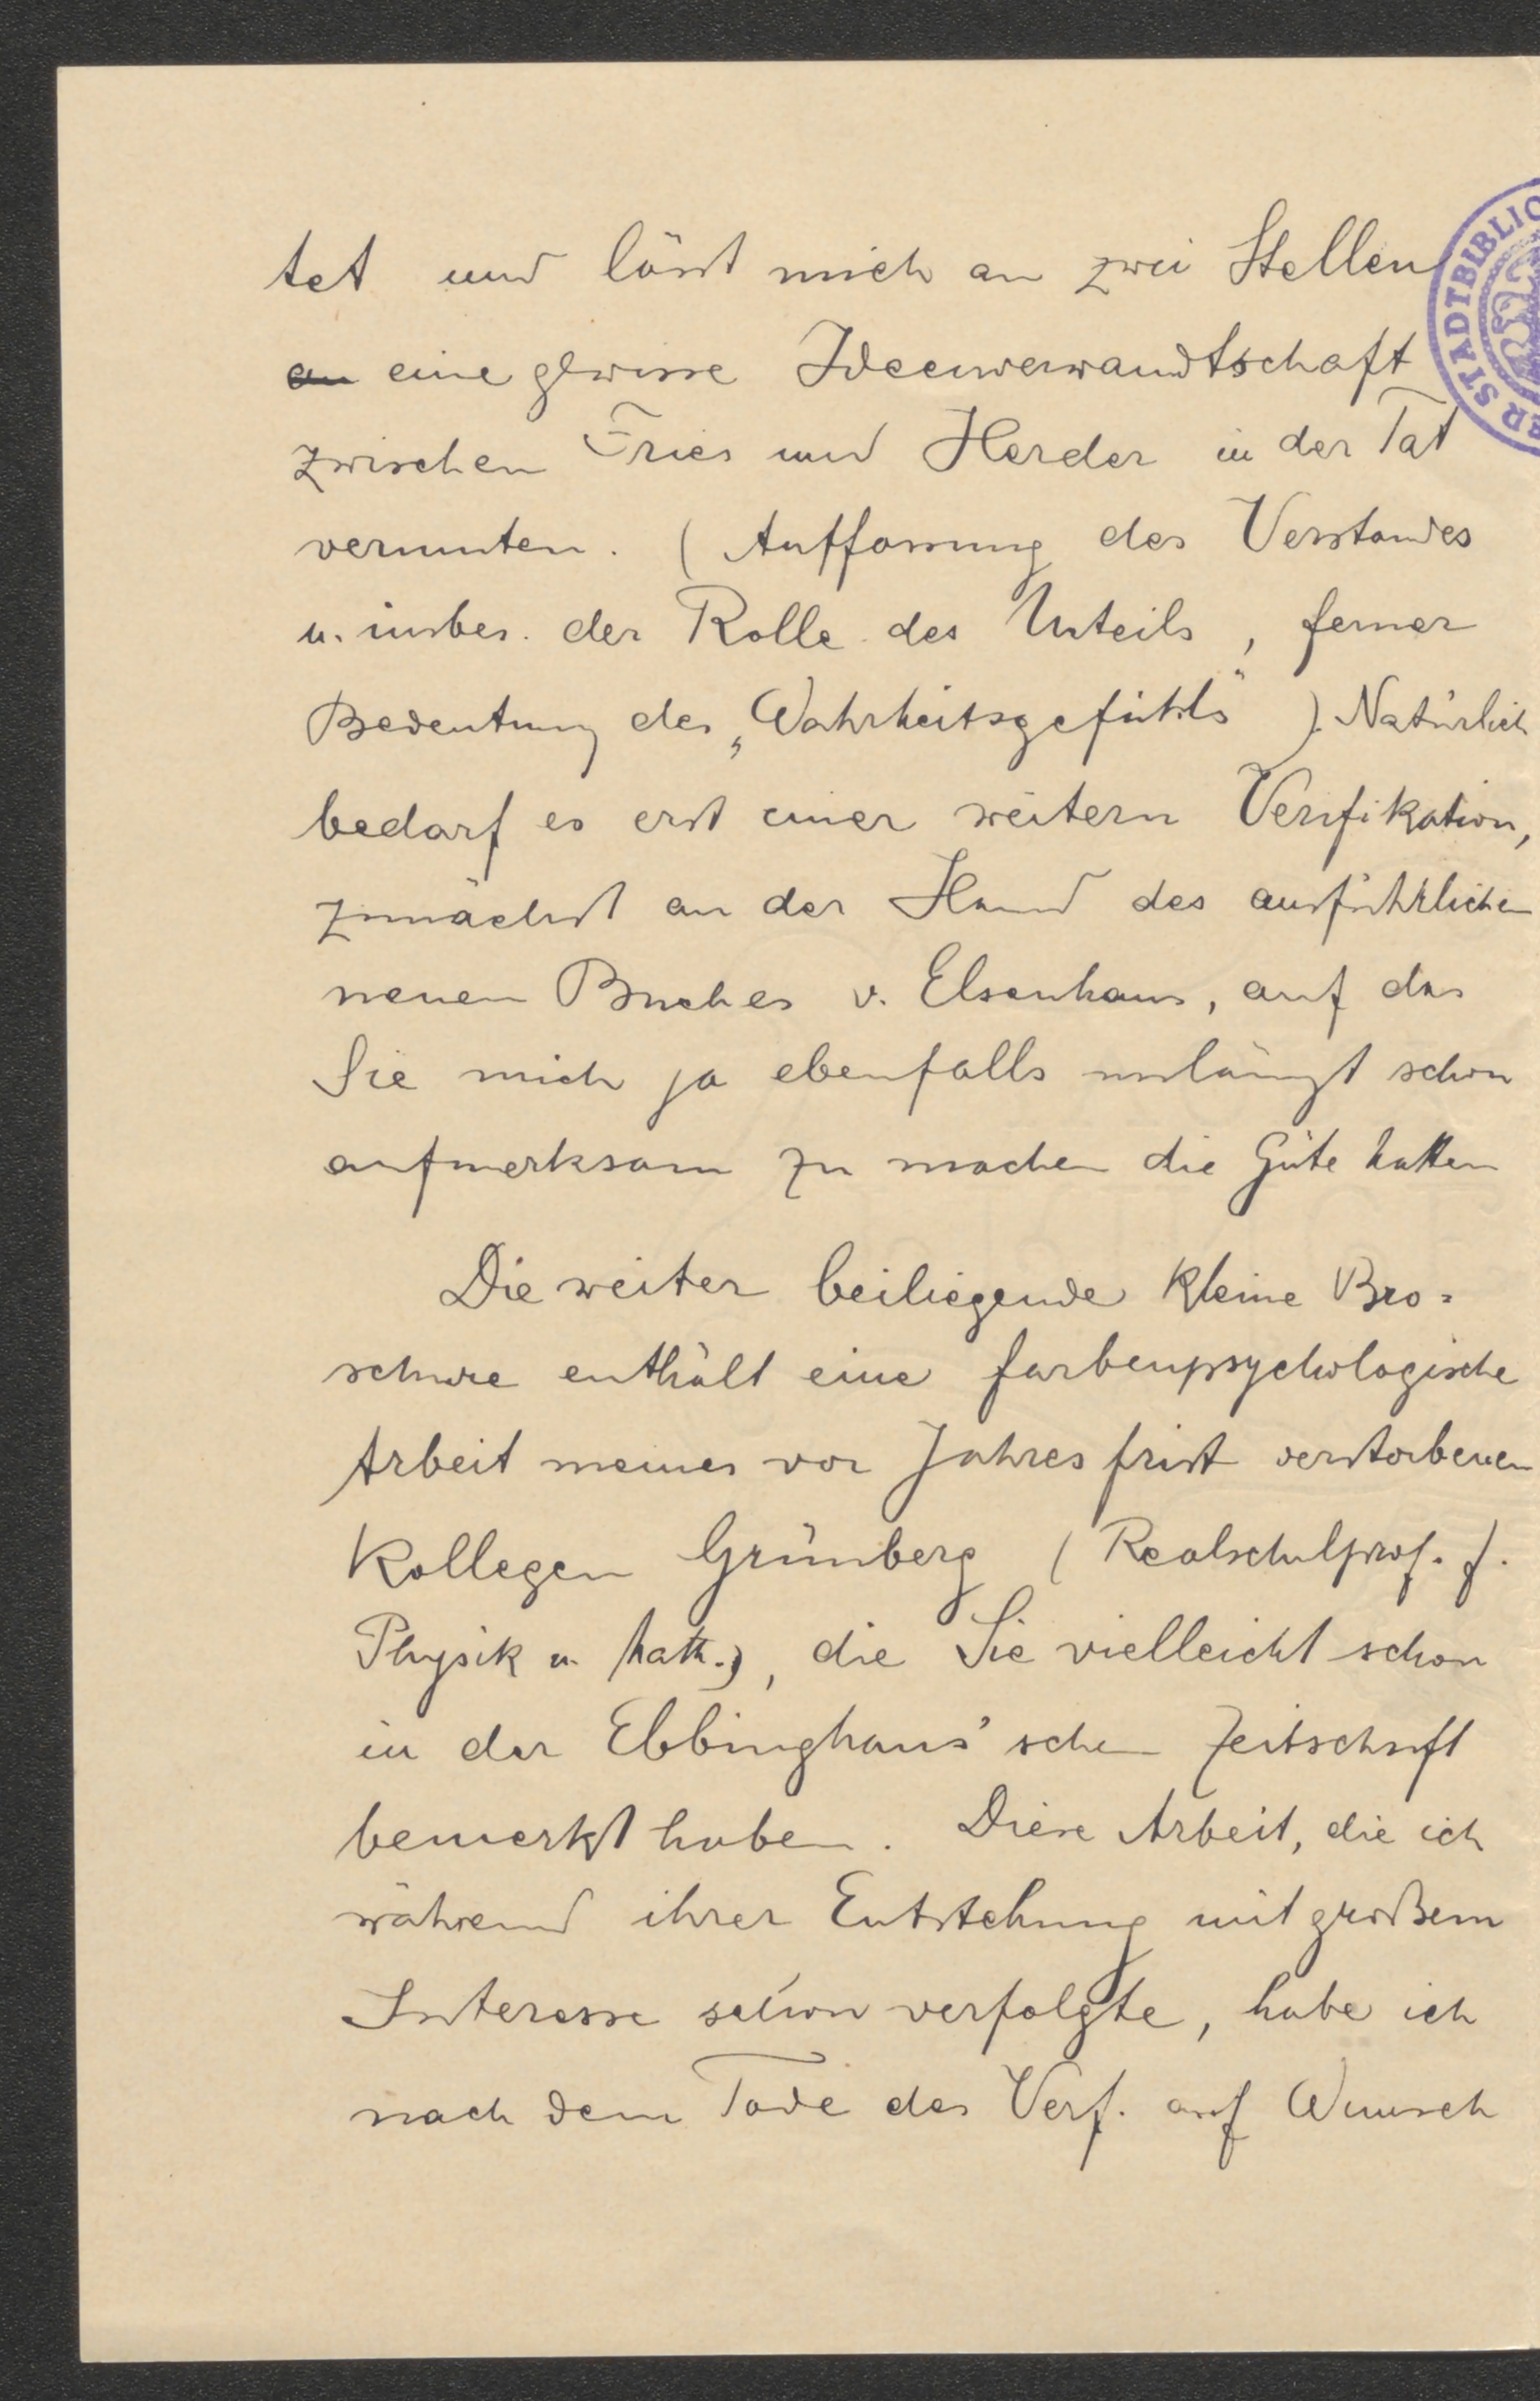 tet und lässt mich an zwei Stellen
an eine gewisse Ideenverwandtschaft
zwischen Fries und Herder in der Tat
vermuten. (Auffassung des Verstandes
u. insbes. der Rolle des Urteils, ferner
Bedeutung des „Wahrheitsgefühls“). Natürlich
bedarf es erst einer weitern Verifikation,
zunächst an der Hand des ausführlichen
neuen Buches v. Elsenhans, auf das
Sie mich ja ebenfalls unlängst schon
aufmerksam zu machen die Güte hatten
Die weiter beiliegende kleine Bro=
schure enthält eine farbenpsychologische
Arbeit meines vor Jahresfrist verstorbenen
Kollegen Grünberg (Realschulprof. f.
Physik u. Math.), die Sie vielleicht schon
in der Ebbinghaus'schen Zeitschrift
bemerkt haben. Diese Arbeit, die ich
während ihrer Entstehung mit großem
Interesse schon verfolgte, habe ich
nach dem Tode des Verf. auf Wunsch
STADTBIBLIO